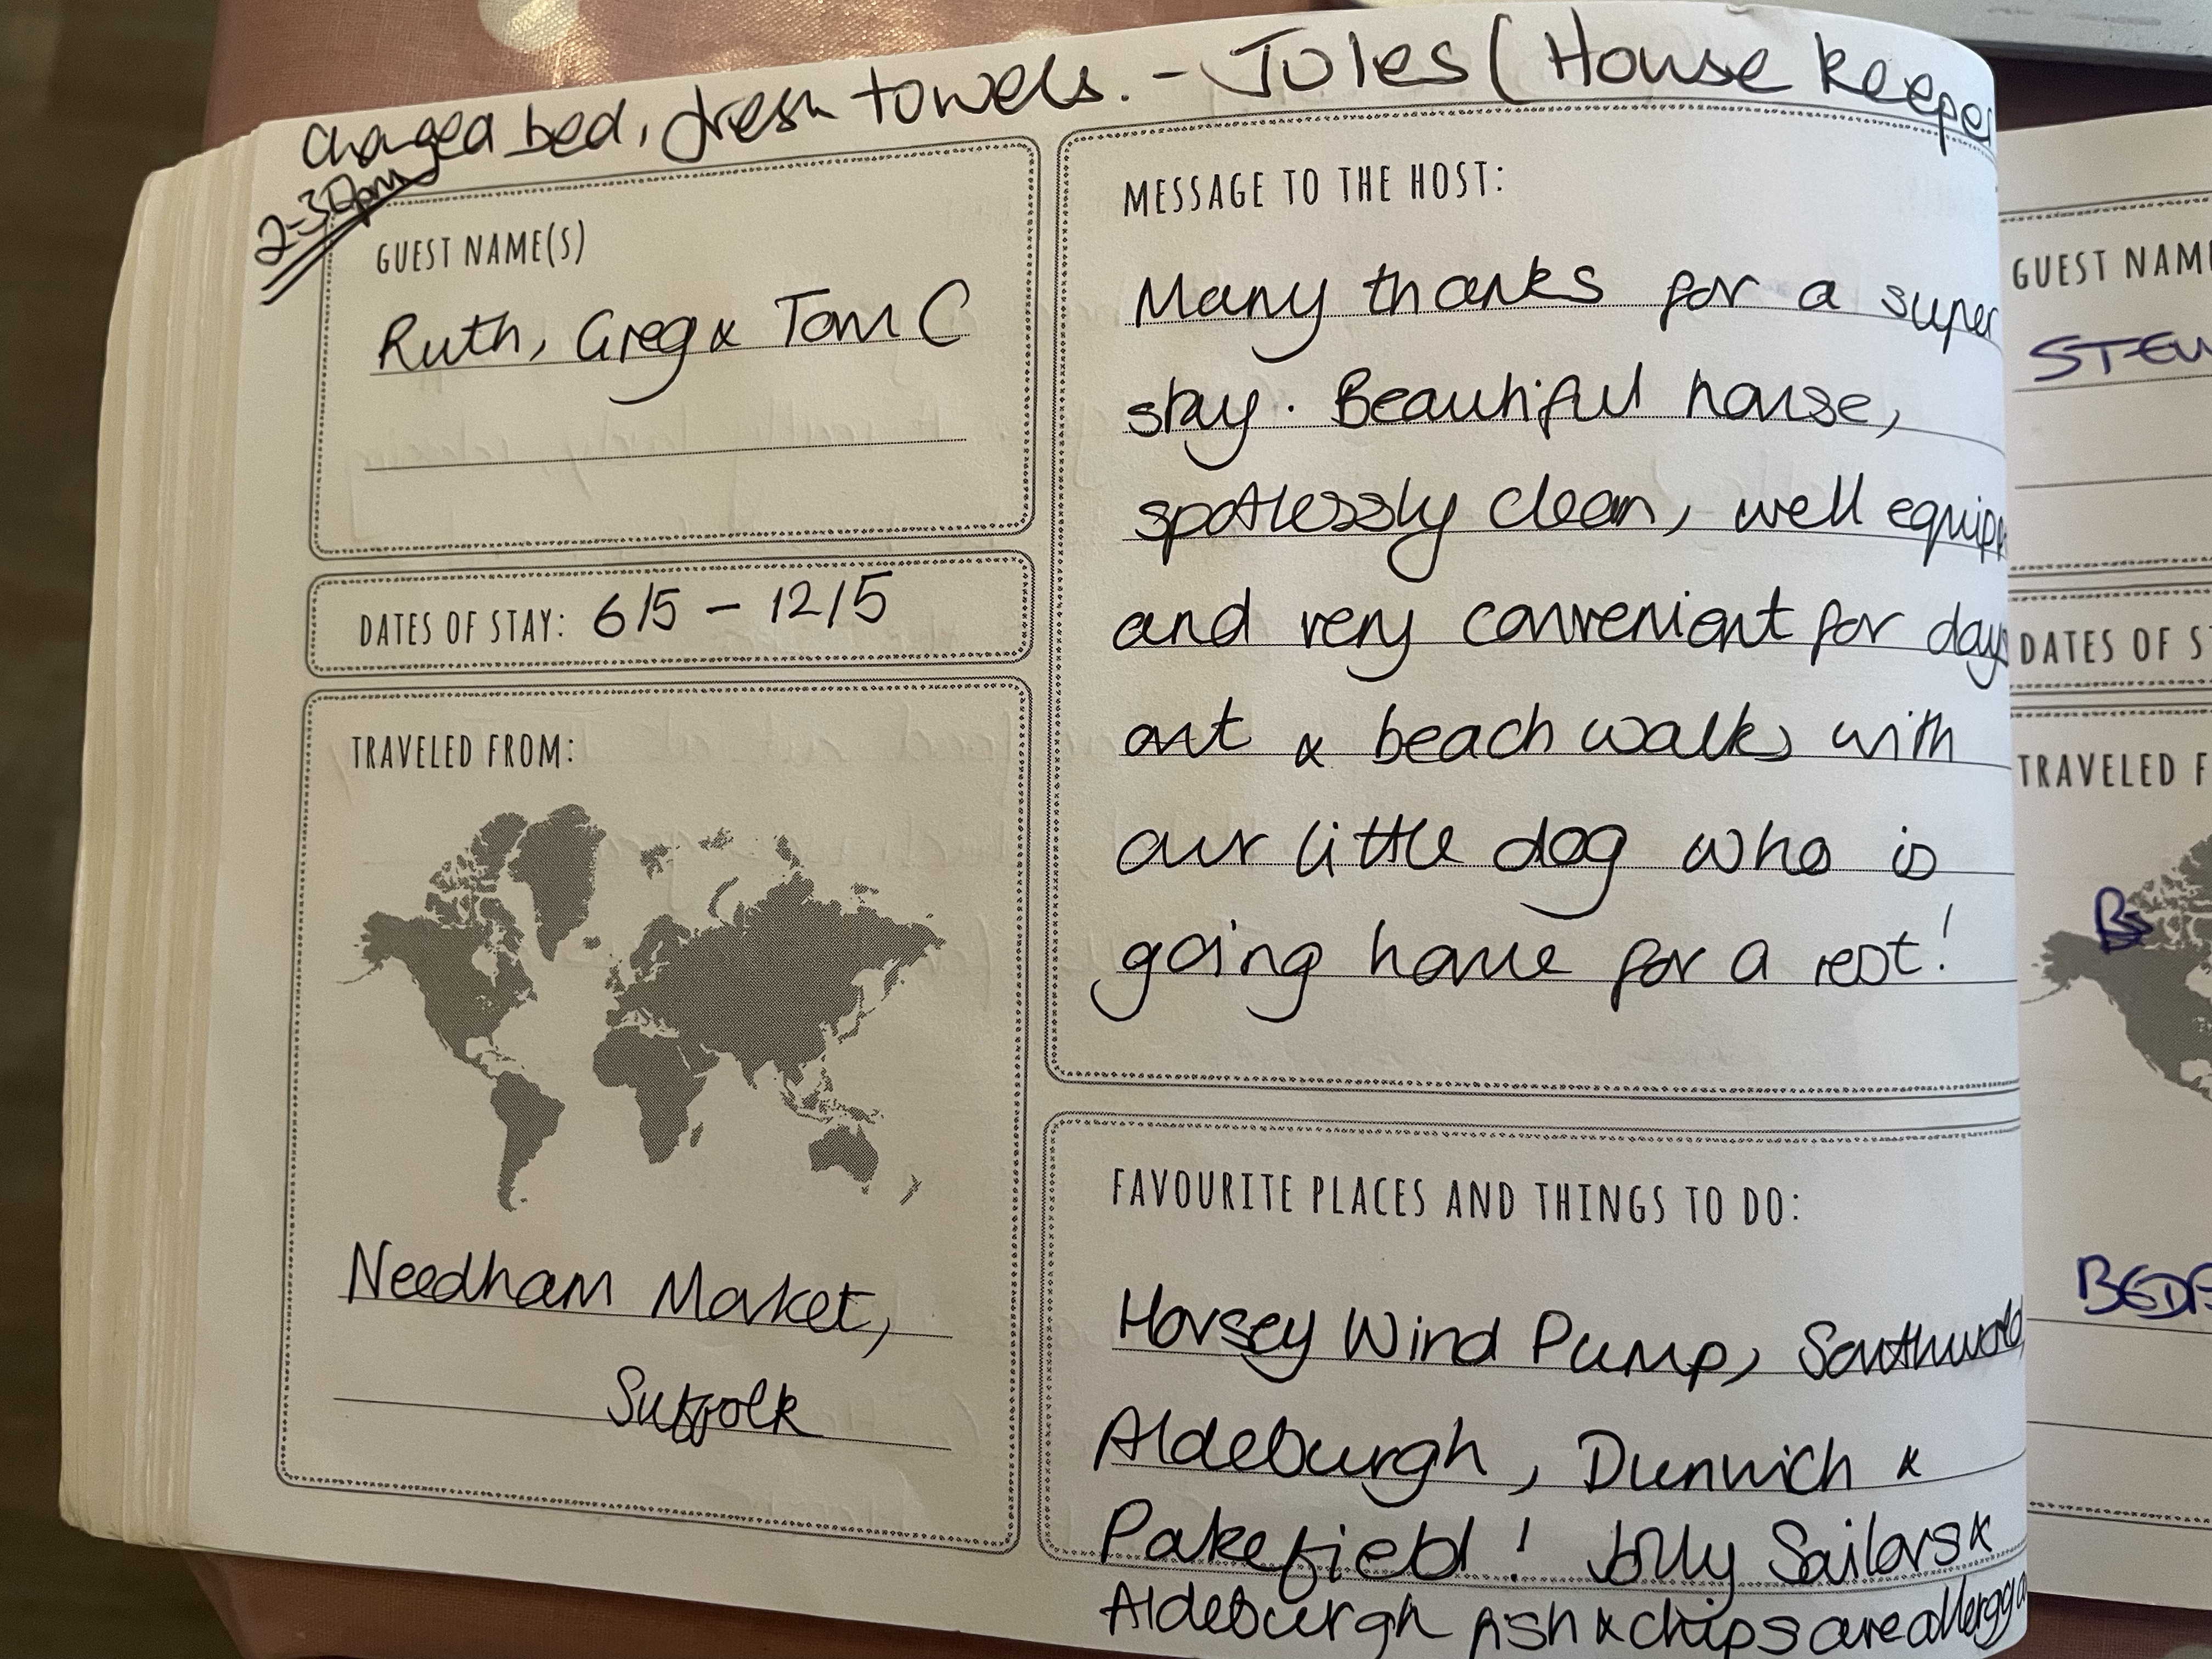 Changed bed, fresh towels. - Jules (House keeper
2-30pm
GUEST NAME(S)
Ruth, Greg & Tom C
DATES OF STAY: 6/5 - 12/5
TRAVELED FROM:
Needham Market,
Suffolk
MESSAGE TO THE HOST:
Many thanks for a super
stay. Beautiful house,
spotlessly clean, well
and very convenient for days
out & beach walks with
our little dog who is
going home for a rest!
FAVOURITE PLACES AND THINGS TO DO:
Horsey Wind Pump, Southwold,
Aldeburgh, Dunwich &
Pakefield! Jolly Sailors &
Aldeburgh fish & chips are allergy
GUEST NAM
STEW
DATES OF S
TRAVELED F
BEDF